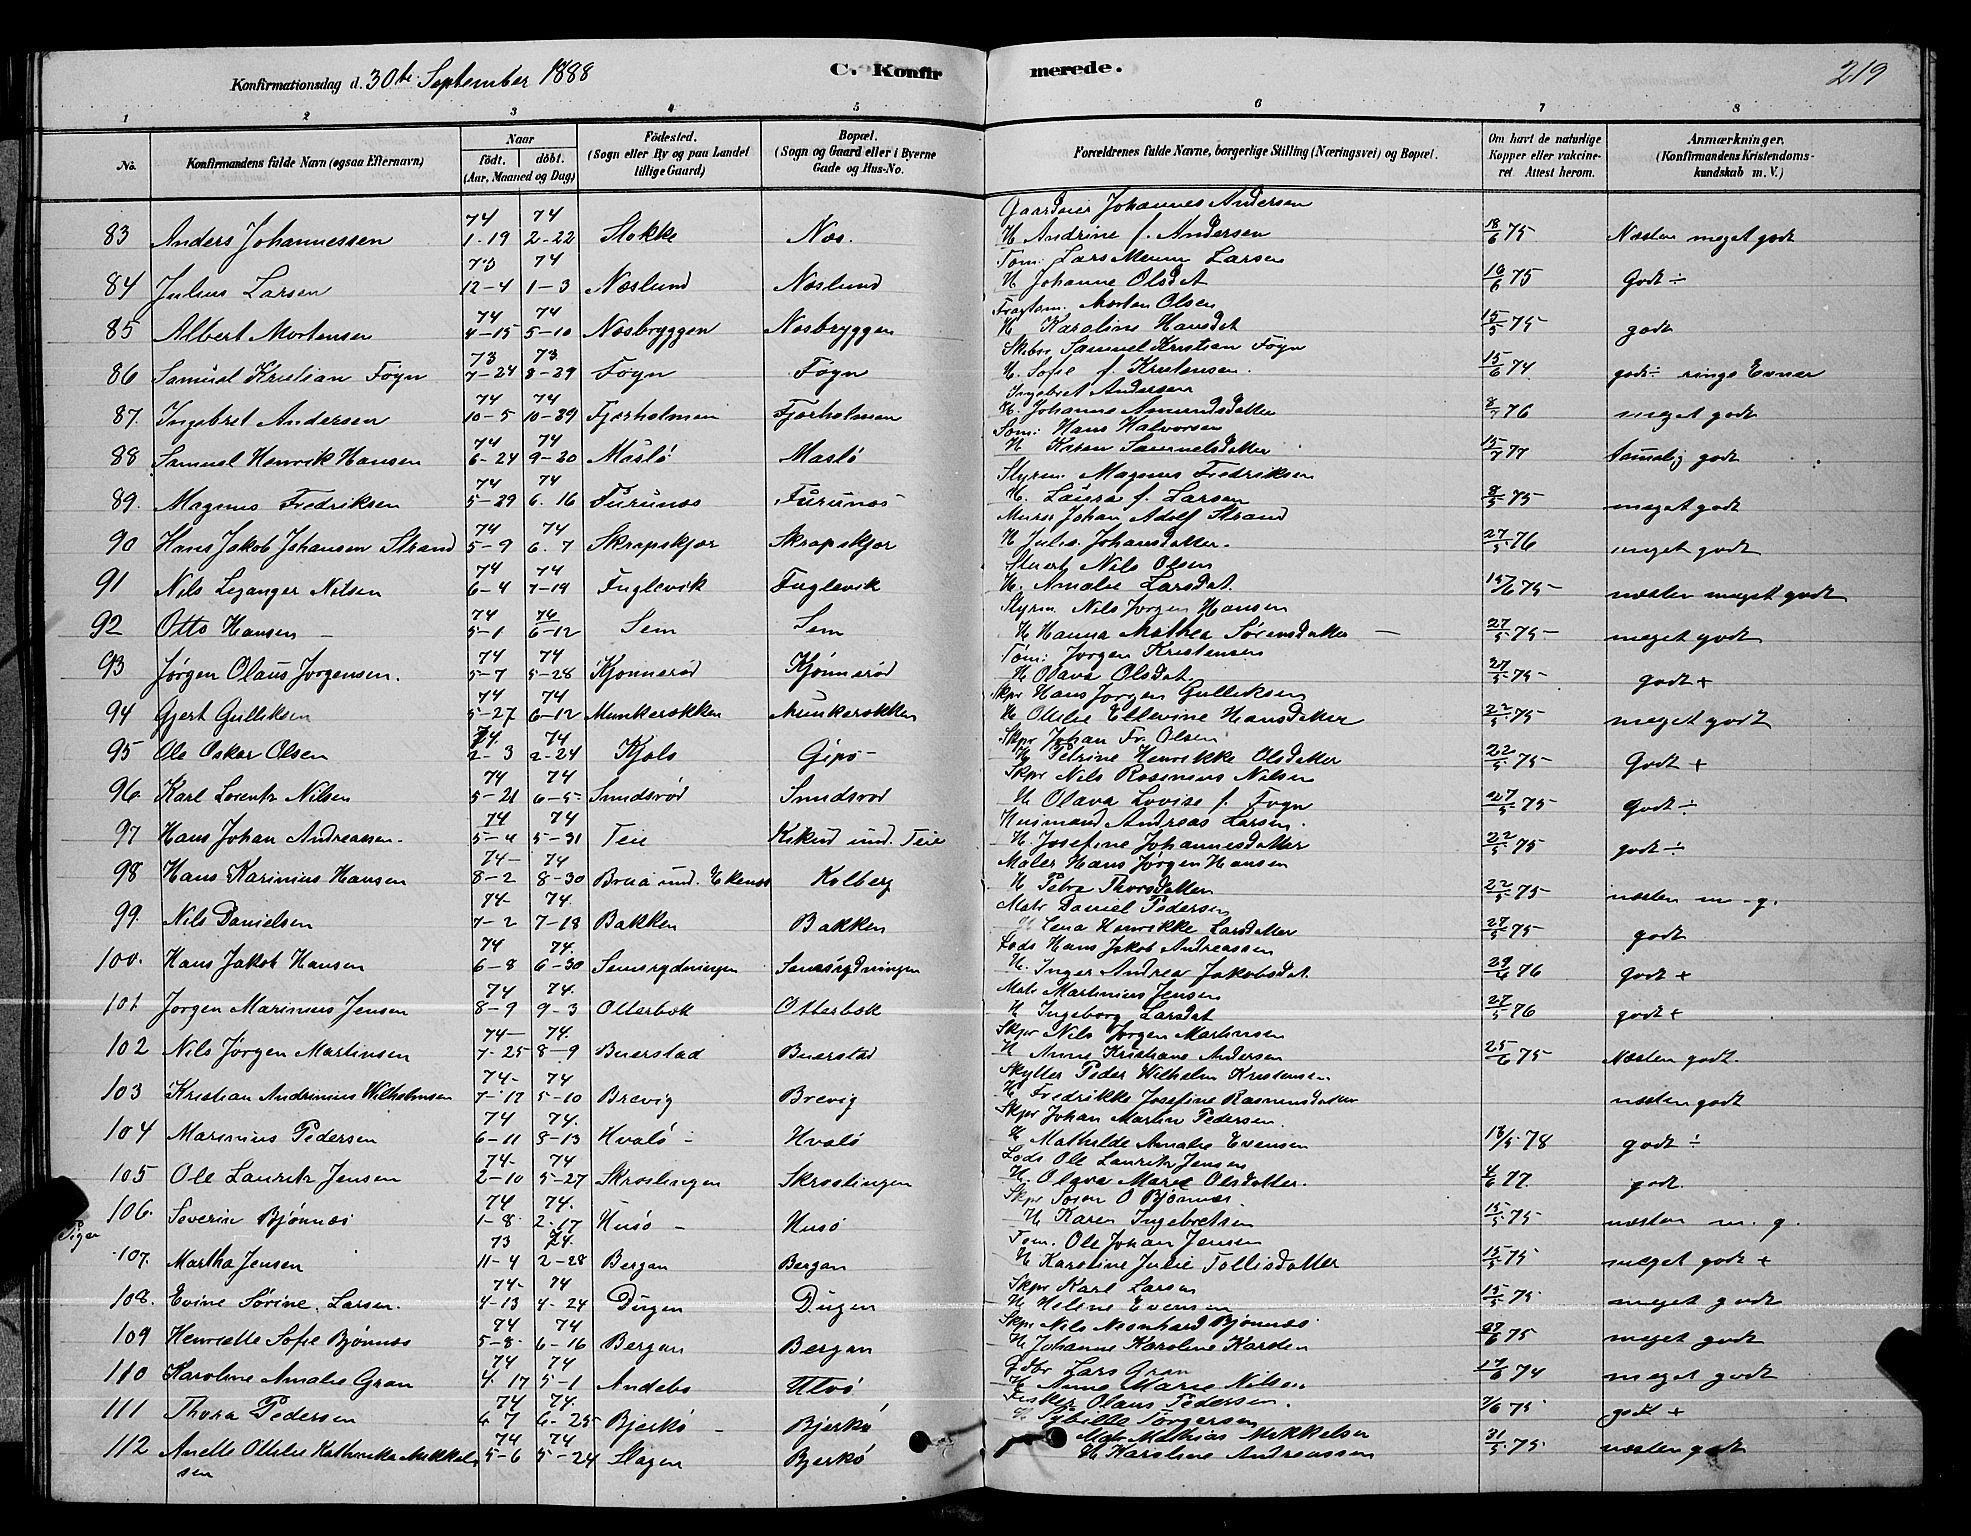 Konfirmationsdag d. 30te September 1888 C. Konfirmerede. 219
1 2 3 4 5 6 7 8
No. Konfirmandens fulde Navn (ogsaa Efternavn) Naar födt. döbt. (Aar, Maaned og Dag) Födested. (Sogn eller By og paa Landet tillige Gaard) Bopæl. (Sogn og Gaard eller i Byerne Gade og Hus-No. Forældrenes fulde Navne, borgerlige Stilling (Næringsvei) og Bopæl. Om havt de naturlige Kopper eller vakcineret Attest herom. Anmærkninger. (Konfirmandens Kristendomskundskab m. V.)
74 74 Gaardeier Johannes Andersen
83 Anders Johannessen 1-19 2-22 Stokke Nes. H Andrine f. Andersen 18/6 75 Næsten meget godt
73 74 Tøm: Lars Larsen
84 Julius Larsen 12-4 1-3 Neslund Neslund H Johanne Olsdat 16/6 75 Godt ÷
74 74 Morten Olsen
85 Albert Mortensen 4-15 5-10 Nesbryggen Nesbryggen H Karoline Hansdat 15/5 75 godt
73 73 Samuel Kristian Føyn
86 Samuel Kristian Føyn 7-24 8-29 Føyn Føyn H. Sofie f. Kristensen. 15/6 74 godt÷ ringe Evner
74 74 Ingebret Andersen
87. Ingebret Andersen 10-5 10-29 Fjærholmen Fjærholmen H. Johanne Amundsdatter 8/7 76 meget godt
74 74 Søm: Hans Halvorsen
88 Samuel Henrik Hansen 6-24 9-20 Masló Masló H Karen Samuelsdatter 15/7 77 temelig godt
74 74 Styrm Magnus Fredriksen
89. Magnus Fredriksen 5-29 6.16 Furunes Furunes H. Laura f. Larsen 8/5 75 meget godt
74 74 Murer Johan Adolf Strand
90 Hans Jakob Johansen Strand 5-9 6.7 Skrapskjær Skrapskjær H Julie Johansdatter. 27/5 76 meget godt
74 74 Stuert Nils Olsen
91 Nils Leganger Nilsen 6-4 7-19 Fuglevik Fuglevik H. Amalie Larsdat. 15/6 75 næsten meget godt
74 74 Styrm Nils Jørgen Hansen
92 Otto Hansen 5-1 6-12 Sem Sem H Hanna Mathea Sørensdatter 27/5 75 meget godt
74 74 Tøm: Jørgen Kristensen
93 Jørgen Olaus Jørgensen. 5-7 5-28 Kjønnerød Kjønnerød H Olava Olsdat 27/5 75 godt +
74 74 Skpr Hans Jørgen Gulliksen
94 Gjert Gulliksen 5-27 6-12 Munkerekken Munkerekken H Otilie Ellevine Hansdatter 22/5 75 meget godt
74. 74 Skpr Johan Fr. Olsen
95 Ole Oskar Olsen 2-3 2-24 Kjole Gipø H Petrine Henrikke Olsdatter 22/5 75 Godt +
74 74 Skpr Nils Rasmus Nilsen
96. Karl Lorentz Nilsen 5-21 6-5 Smidsrød Smidsrød H Olava Lovise f. Føyn 27/5 75 Godt ÷
74 74 Husmand Andreas Larsen.
97 Hans Johan Andreassen. 5-4 5-31 Teie Kikud und. Teie H. Josefine Johannesdatter 22/5 75 godt ÷
74 74 Maler Hans Jørgen Hansen
98 Hans Karinius Hansen 8-2 8-30 Brua und. Ekenes Kolberg H Petra Thorsdatter 22/5 75 næsten m. g.
74 74. Matr Daniel Pedersen
99. Nils Danielsen 7-2 7-18 Bakken Bakken H Lena Henrikke Larsdatter 27/5 75 godt
74 74. Lods Hans Jakob Andreassen
100. Hans Jakob Hansen 6-8 6-30 Semsrydningen Semsrydningen H. Inger Andrea Jakobsdat. 29/6 76 godt +
74 74. Matr Martinius Jensen
101 Jørgen Marinius Jensen 8-9 9-3 Otterbek Otterbek H Ingeborg Larsdat 27/5 76 godt +
74 74. Skpr Nils Jørgen Martinsen
102 Nils Jørgen Martinsen 7-25 8-9 Buerstad Buerstad H Anne Kristiane Andersen 25/6 75 Næsten godt.
74 74 Skytter Peder Wilhelm Kristensen
103 Kristian Andrinius Wilhelmsen 7-17 5-10 Brevig Brevig H Fredrikke Josefine Rasmusdatter næsten godt
74 74. Skpr Johan Martin Pedersen.
104 Marinius Pedersen 6-11 8-13 Hvalø Hvalø H Mathilde Amalie Evensen 13/5 78 godt ÷
74 74 Lods Ole Lauritz Jensen
105 Ole Lauritz Jensen 2-10 5-27 Skrøslingen Skrøslingen H. Olava Marie Olsdatter. 4/6 77 godt.
74 74. Skpr Søren O Bjønnes
106. Severin Bjønnes 1-8 2.17 Husø Husø H Karen Ingebretsen 15/5 75 næsten m. g.
Piger
73 74. Tøm. Ole Johan Jensen
107. Martha Jensen 11-4 2-28 Bergan Bergan H Karoline Julie Tollisdatter 15/5 75 meget godt +
74 74 Skpr Karl Larsen
108. Evine Sørine Larsen. 4-13 4-24 Dugen Dugen H. Helene Evensen 15/5 75 meget godt
74 74 Skpr Nils Bjønnes
109 Henriette Sofie Bjønnes 5-8 6-16 Bergan Bergan H Johanne Karoline Karsten 27/6 75 meget godt
74 74 Gdbr Lars Gran
110 Karoline Amalie Gran 4.17 5-1 Andebo Utvø H Anne Marie Nilsen 17/6 74 meget godt
74 74. Fisker Olaus Pedersen.
111 Thora Pedersen 6 7 6-25 Bjerkø Bjerkø H Sybille Torgersen 7/6 75 godt +
74 74 Matr Mathias Mikkelsen
112 Anette Ottilie Kathinka Mikkel 5-6 5-24 Slagen Bjerkø H Karoline Andreassen 31/5 75 næsten godt
sen